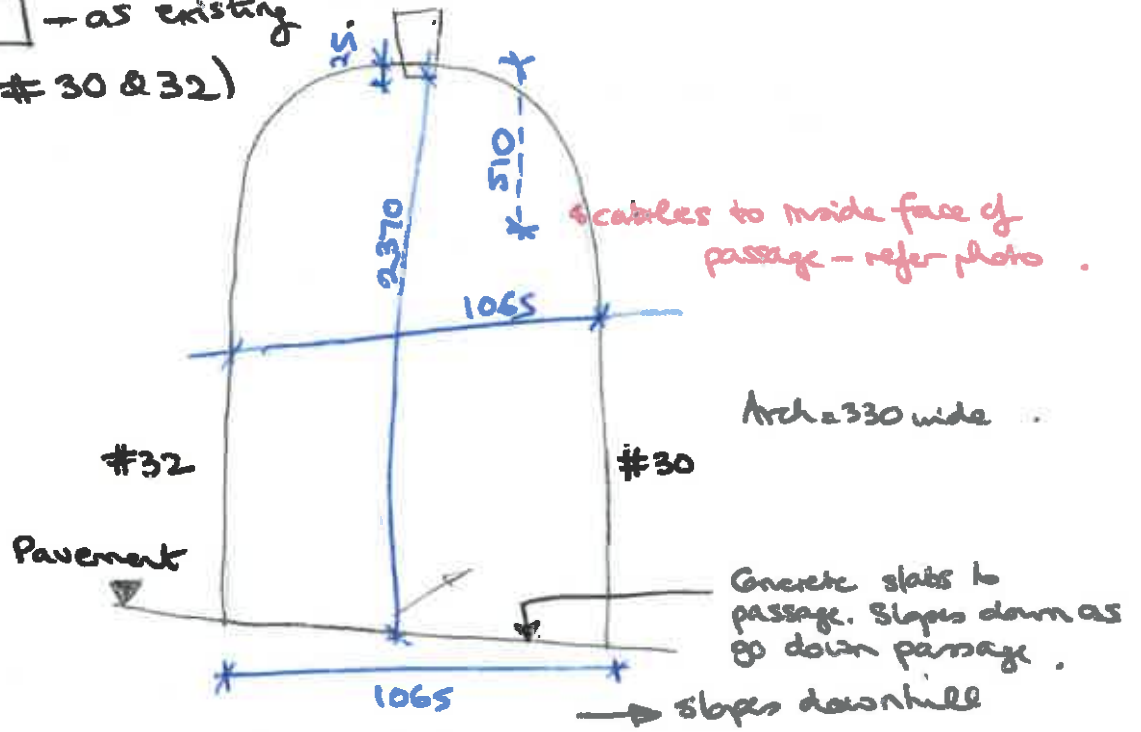 - as existing
# 30 & 32)
25.
510
2370
& cables to inside face of
passage - refer photo .
1065
Arch = 330 wide .
#32
#30
Pavement
Concrete slabs to
passage. Slopes down as
go down passage .
1065
→ slopes downhill